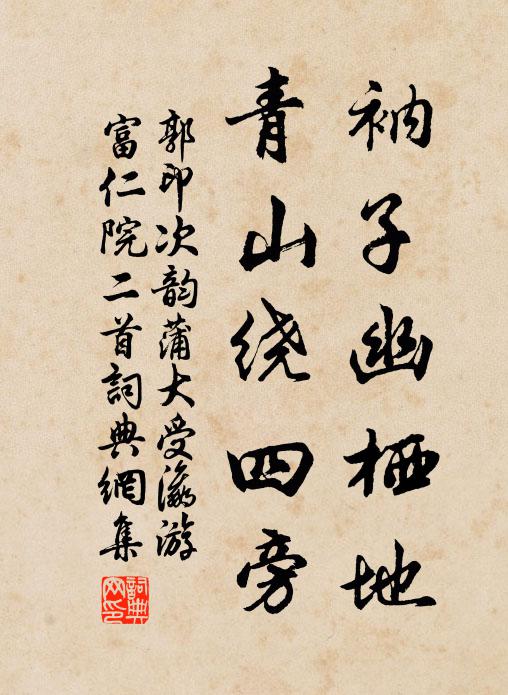 衲子幽栖地
青山绕四旁
郭印次韵蒲大受瀛游
富仁院二首詞典網集
詞典
网印